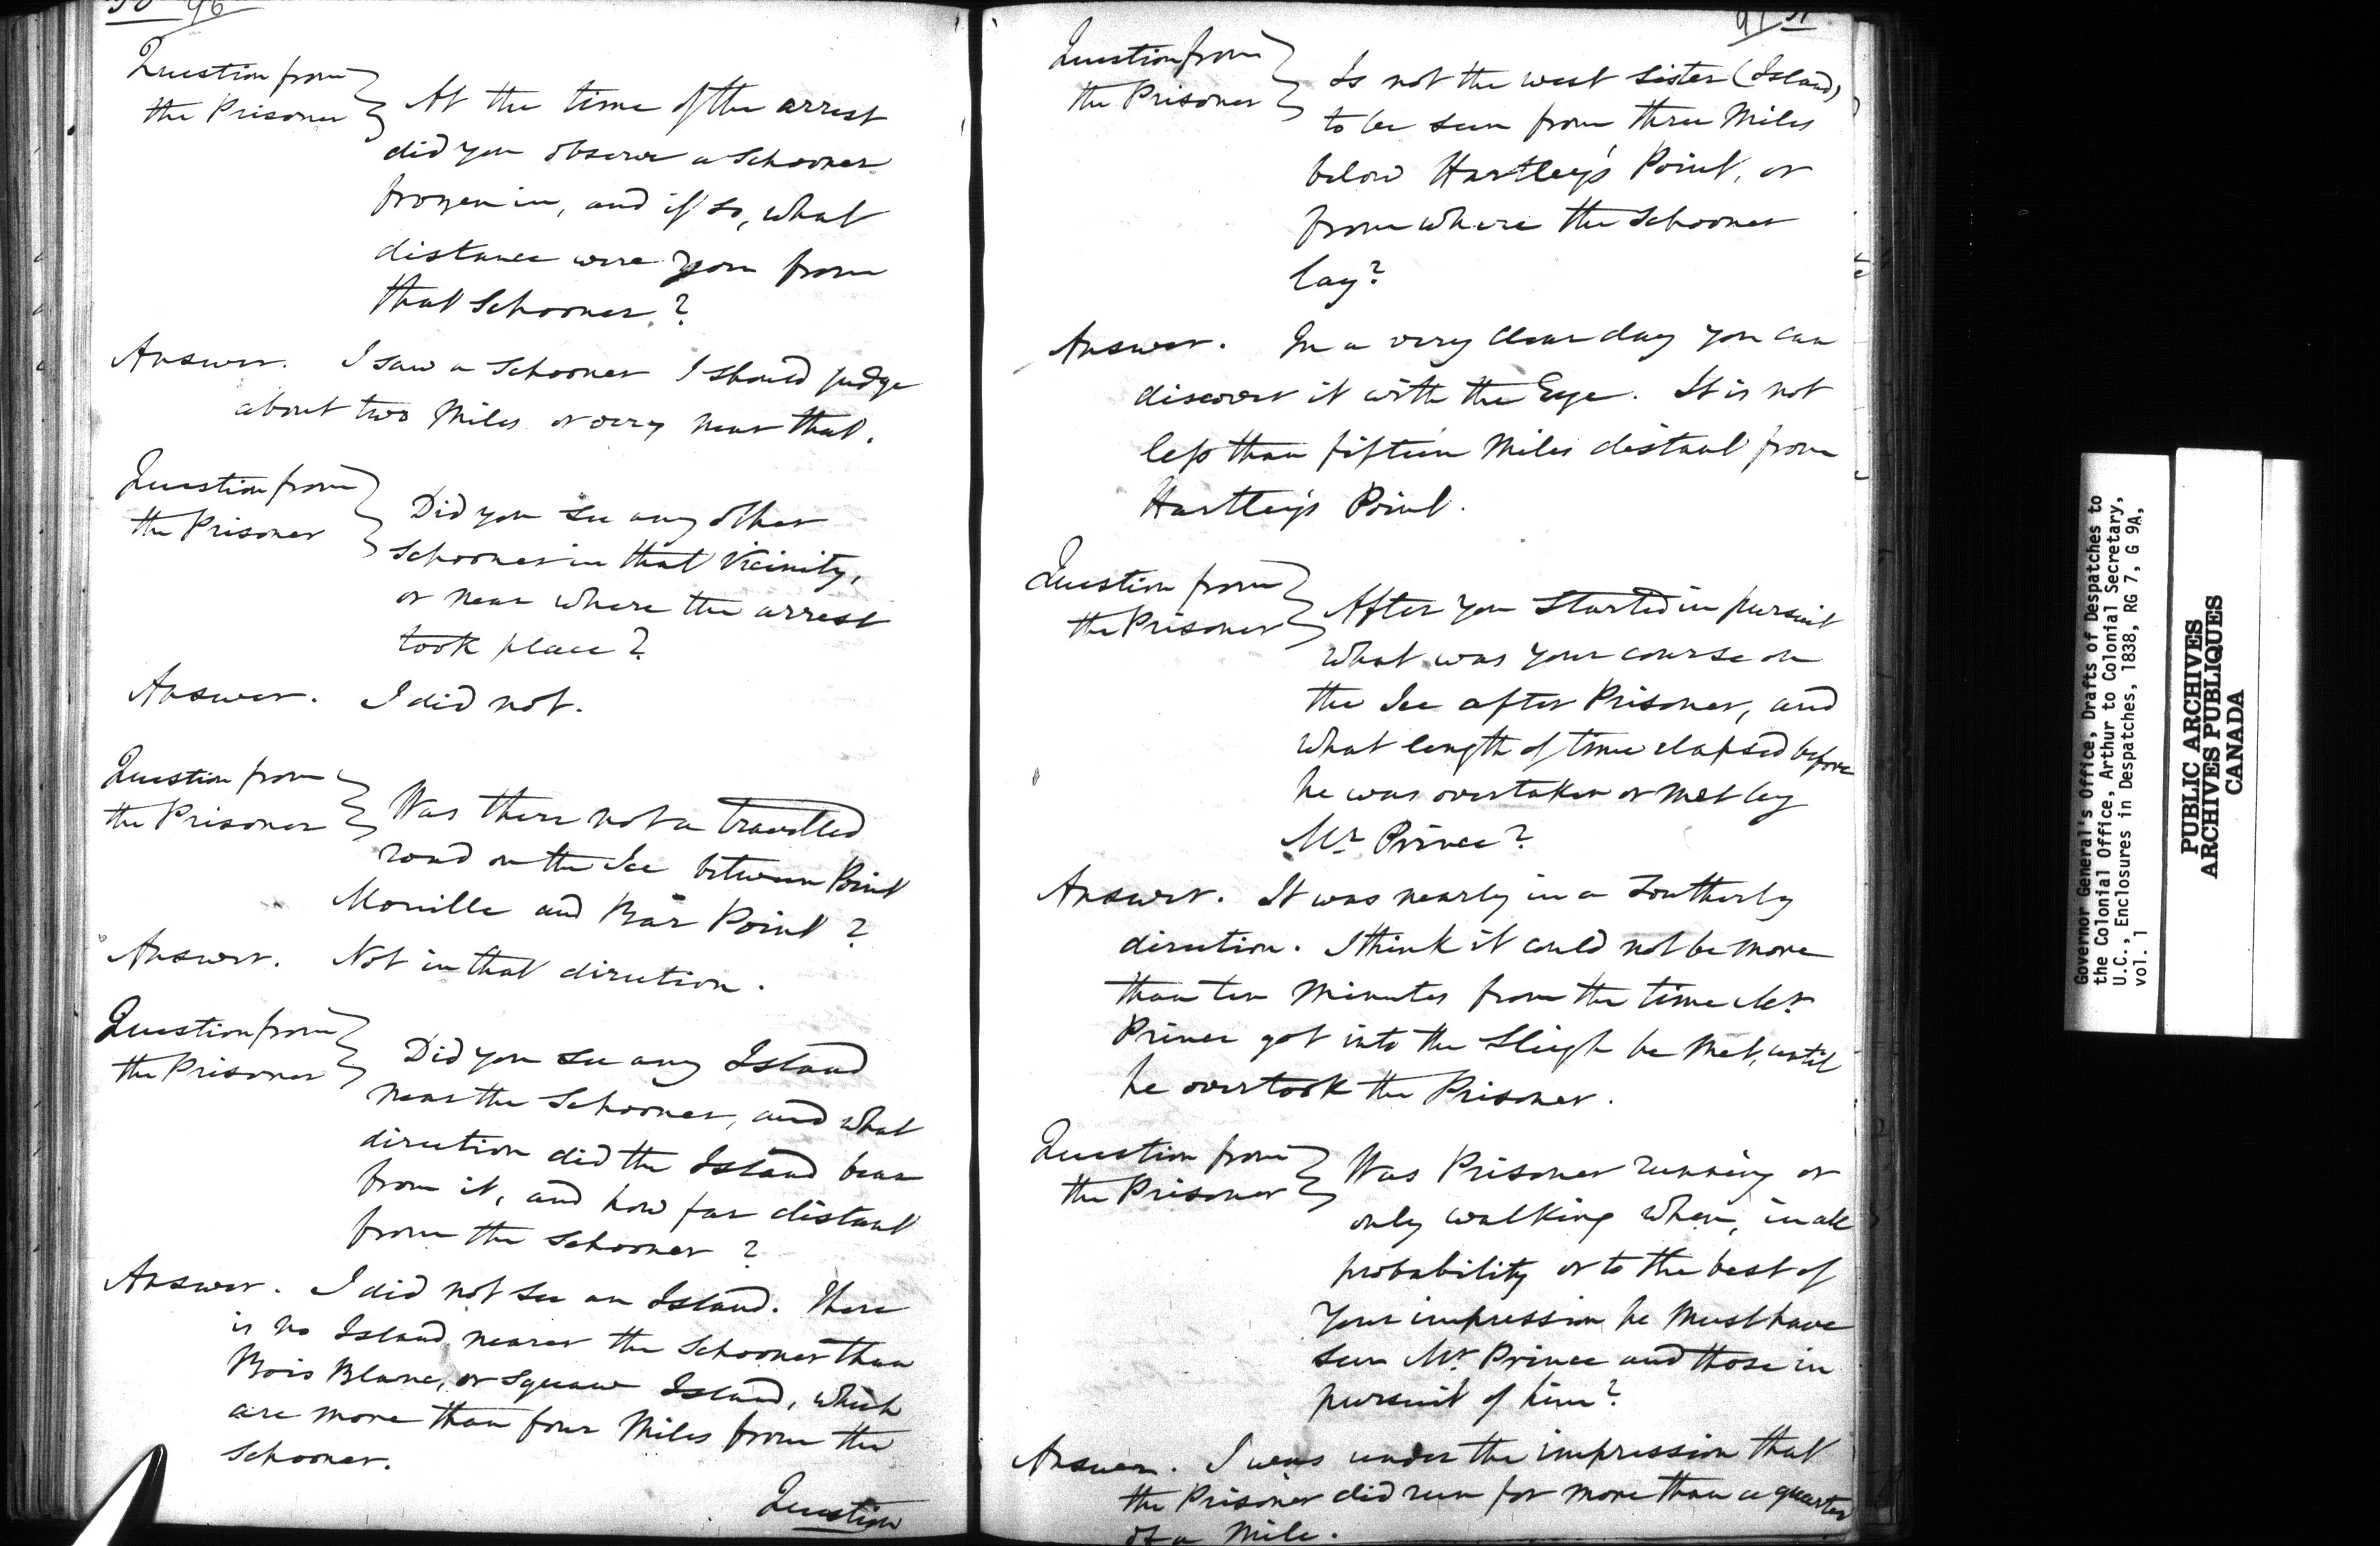 96
Question from
the Prisoner } At the time of the arrest
did you observe a Schooner
frozen in, and if so, what
distance were you from
that Schooner?
Answer. I saw a Schooner I should judge
about two Miles or very near that.
Question from
the Prisoner } Did you see any other
Schooner in that Vicinity,
or near where the arrest
took place?
Answer. I did not.
Question from
the Prisoner } Was there not a travelled
road on the Ice between Point
Monille and Bar Point?
Answer. Not in that direction.
Question from
the Prisoner } Did you see any Island
near the Schooner, and what
direction did the Island bear
from it, and how far distant
from the Schooner?
Answer. I did not see an Island. There
is no Island nearer the Schooner than
Bois Blanc, or Squaw Island, which
are more than four Miles from the
Schooner.
Question
Question from
the Prisoner } Is not the west Sister (Island)
to be seen from three Miles
below Hartley's Point, or
from where the Schooner
lay?
Answer. In a very clear day you can
discover it with the Eye. It is not
less than fifteen Miles distant from
Hartley's Point.
Question from
the Prisoner } After you started in pursuit
what was your course on
the Ice after Prisoner, and
what length of time elapsed before
he was overtaken or met by
Mr. Prince?
Answer. It was nearly in a Southerly
direction. I think it could not be more
than ten Minutes from the time Mr.
Prince got into the Sleigh he met, until
he overtook the Prisoner.
Question from
the Prisoner } Was Prisoner running or
only walking when, in all
probability or to the best of
your impression he must have
seen Mr. Prince and those in
pursuit of him?
Answer. I was under the impression that
the Prisoner did run for more than a quarter
of a Mile.
Governor General's Office, Drafts of Despatches to
the Colonial Office, Arthur to Colonial Secretary,
U.C., Enclosures in Despatches, 1838, RG 7, G 9A,
vol. 1
PUBLIC ARCHIVES
ARCHIVES PUBLIQUES
CANADA